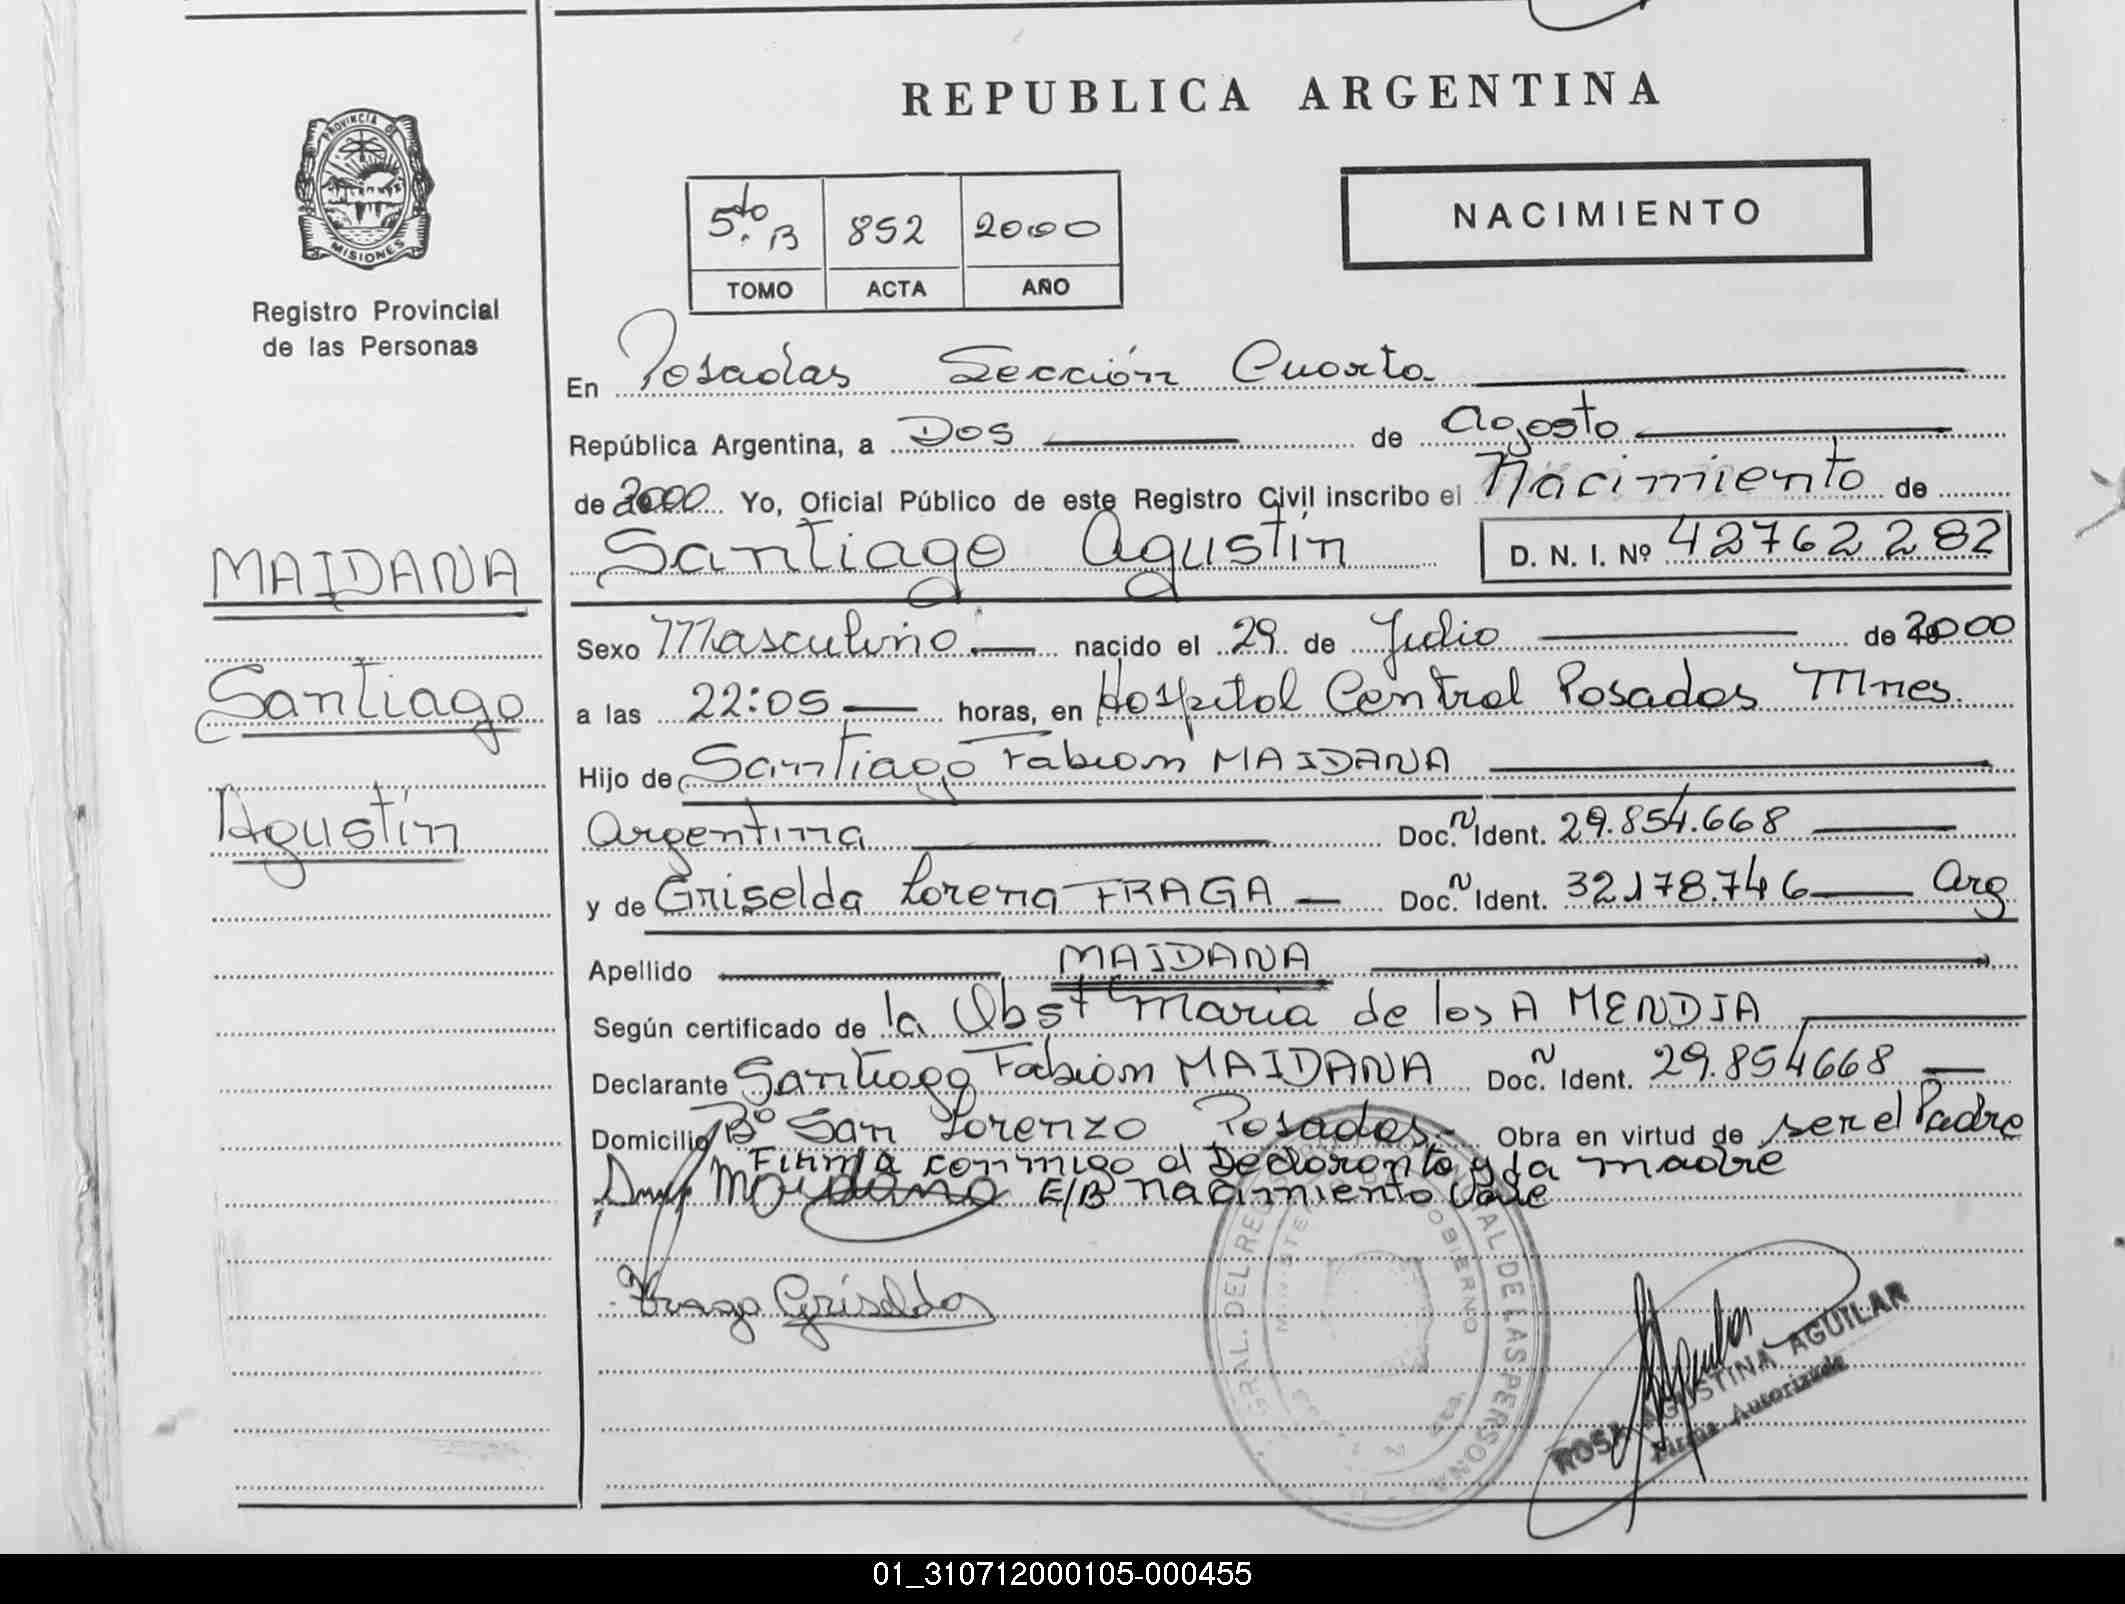 REPUBLICA ARGENTINA
PROVINCIA DE
MISIONES
Registro Provincial
de las Personas
5to. B 852 2000
TOMO ACTA AÑO
NACIMIENTO
En Posadas Sección Cuarta
República Argentina, a Dos de Agosto
de 2000 Yo, Oficial Público de este Registro Civil inscribo el Nacimiento de
Santiago Agustín D. N. I. Nº 42762282
MAIDANA
Santiago
Agustín
Sexo Masculino nacido el 29 de Julio de 2000
a las 22:05 horas, en Hospital Central Posadas Mnes.
Hijo de Santiago Fabian MAIDANA
Argentina Doc. N Ident. 29.854.668
y de Griselda Lorena FRAGA Doc. N Ident. 32.178.746 Arg
Apellido MAIDANA
Según certificado de la Obst Maria de los A MENDIA
Declarante Santiago Fabian MAIDANA Doc. N Ident. 29.854668
Domicilio Bº San Lorenzo Posadas Obra en virtud de ser el Padre
Firma conmigo el Declarante y la madre
Maidana E/B nacimiento Vale
Fraga Griselda
GRAL. DEL REG AL DE LAS PERSONAS
MINISTERIO GOBIERNO
ROSA AGUSTINA AGUILAR
Firma Autorizada
01_310712000105-000455